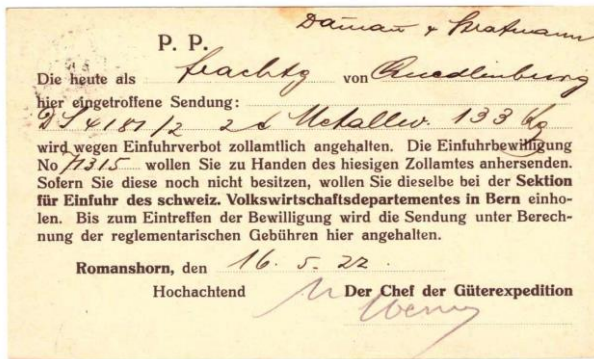 & Stratmann
P. P.
Die heute als Frachtg von Quedlinburg
hier eingetroffene Sendung:
DS 4181/2 2 c Metallw. 133 Kg
wird wegen Einfuhrverbot zollamtlich angehalten. Die Einfuhrbewilligung
No 71315 wollen Sie zu Handen des hiesigen Zollamtes anhersenden.
Sofern Sie diese noch nicht besitzen, wollen Sie dieselbe bei der Sektion
für Einfuhr des schweiz. Volkswirtschaftsdepartementes in Bern einho-
len. Bis zum Eintreffen der Bewilligung wird die Sendung unter Berech-
nung der reglementarischen Gebühren hier angehalten.
Romanshorn, den 16. 5. 22.
Hochachtend Der Chef der Güterexpedition